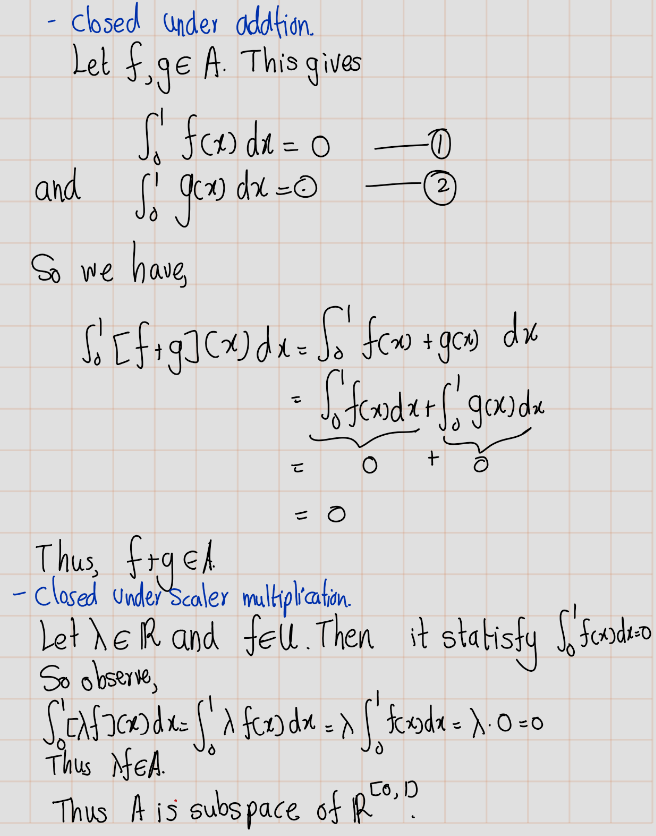 - closed under addtion.
Let f, g ∈ A. This gives
∫₀¹ f(x) dx = 0 —— ①
and ∫₀¹ g(x) dx = 0 —— ②
So we have,
∫₀¹ [f+g](x) dx = ∫₀¹ f(x) + g(x) dx
= ∫₀¹ f(x)dx + ∫₀¹ g(x)dx
= 0 + 0
= 0
Thus, f+g ∈ A.
- Closed under scaler multiplication.
Let λ ∈ ℝ and f ∈ U. Then it statisfy ∫₀¹ f(x)dx=0
So observe,
∫₀¹ [λf](x)dx = ∫₀¹ λ f(x) dx = λ ∫₀¹ f(x)dx = λ·0 = 0
Thus λf ∈ A.
Thus A is subspace of ℝ^[0,1].